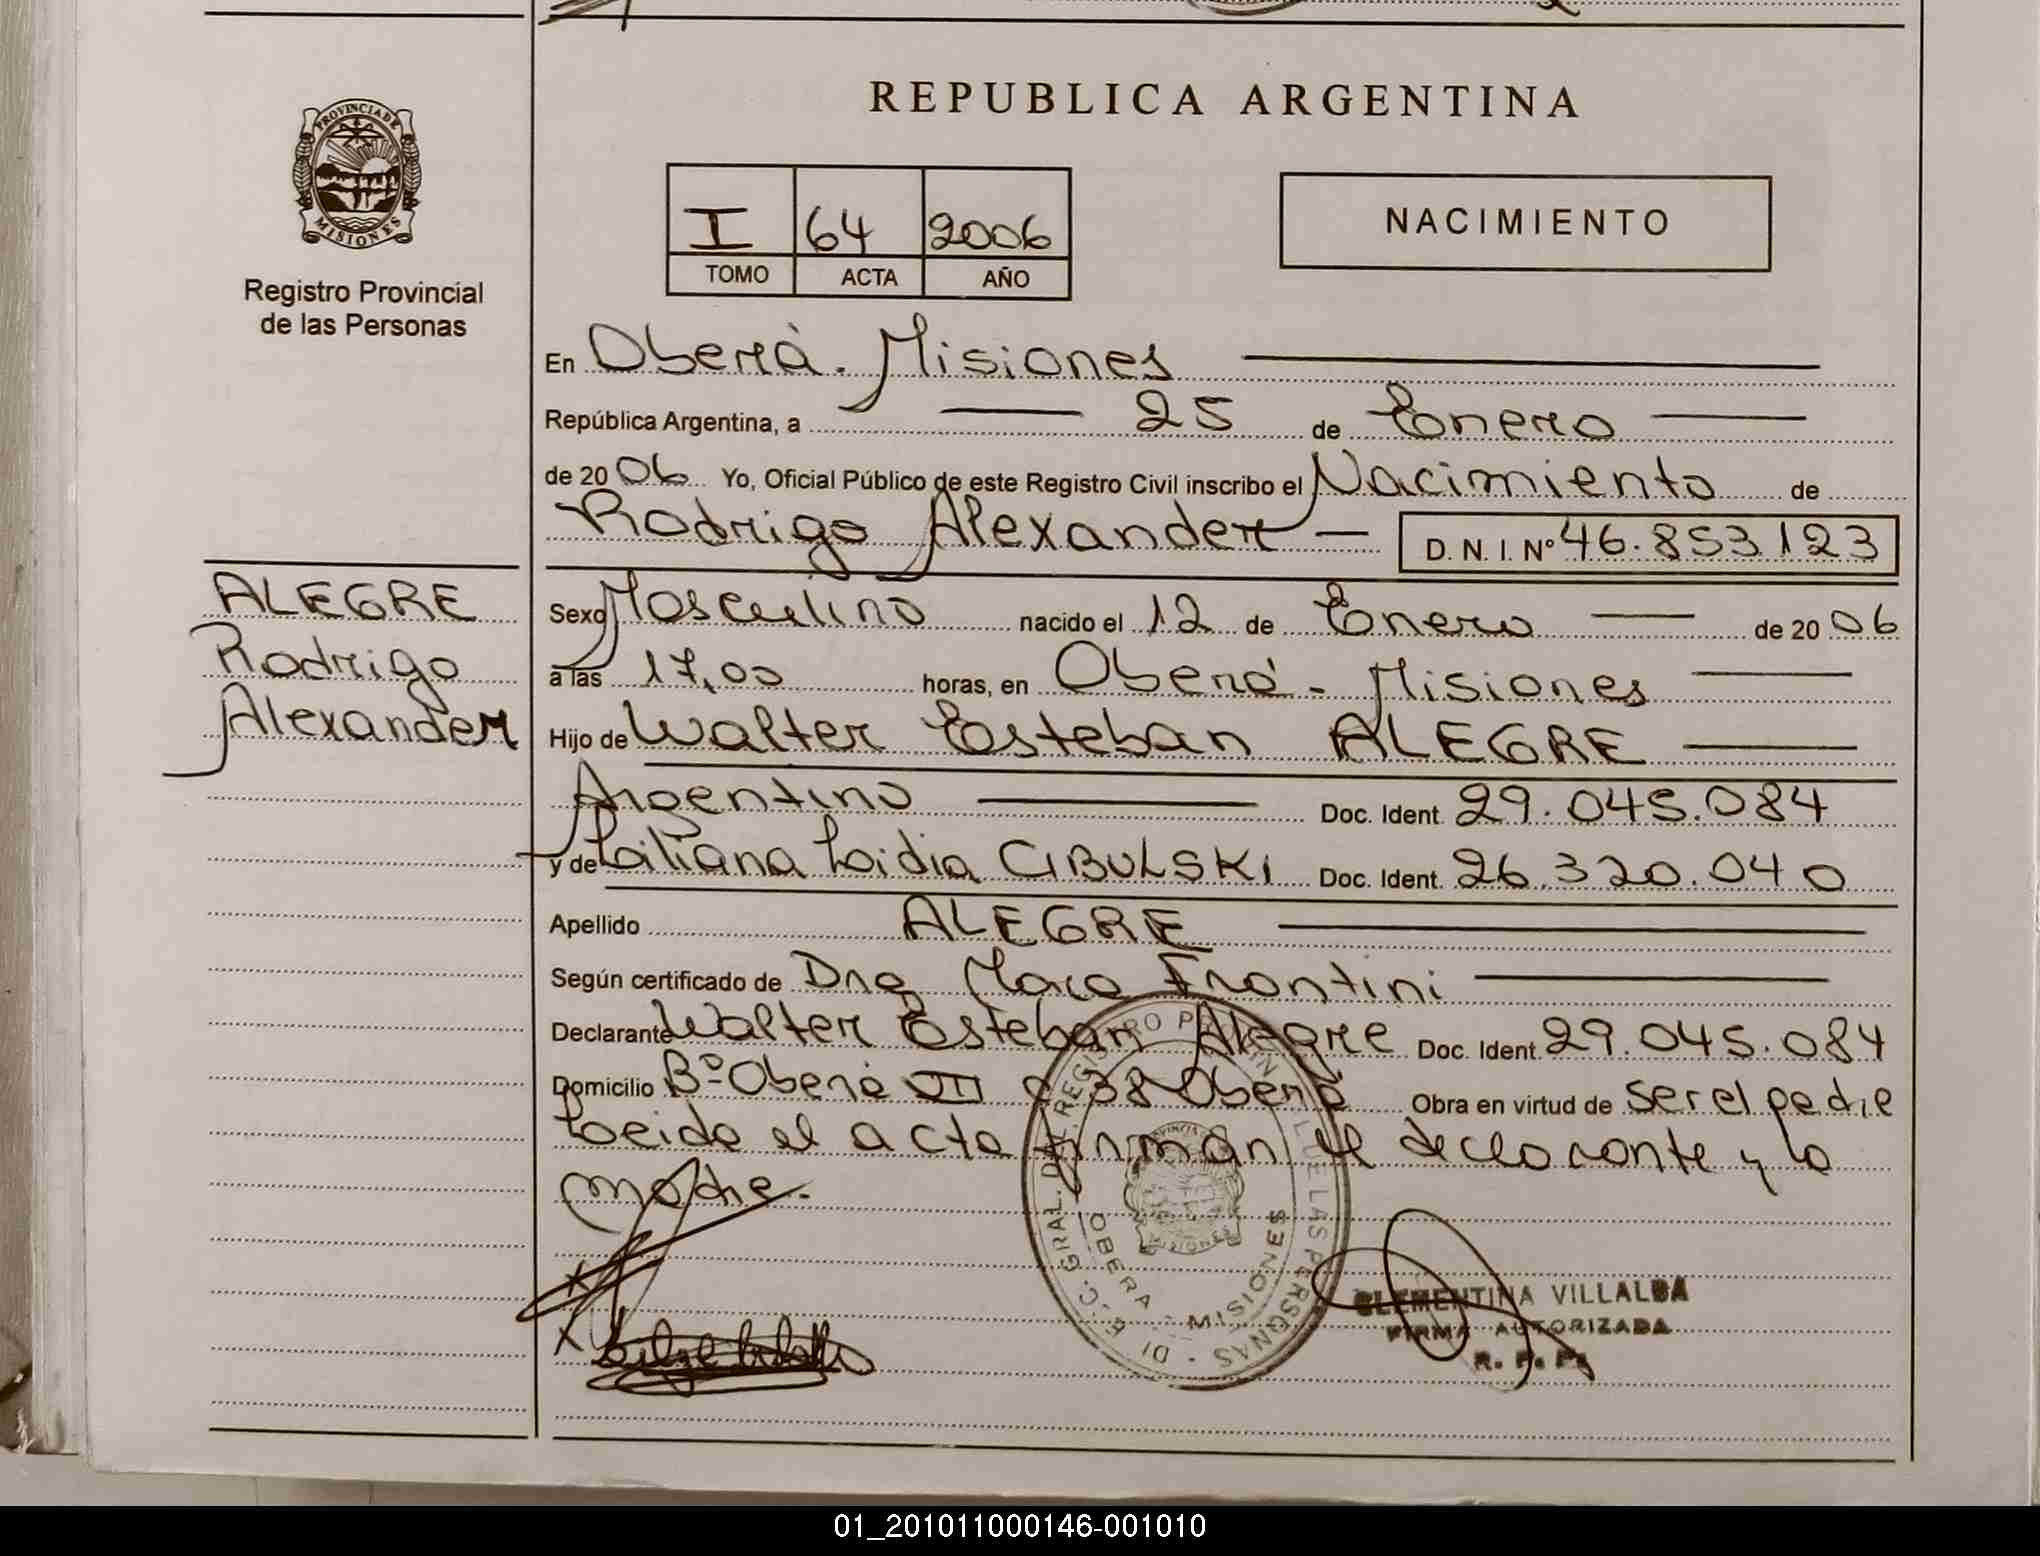 REPUBLICA ARGENTINA
PROVINCIA DE
MISIONES
Registro Provincial
de las Personas
I 64 2006
TOMO ACTA AÑO
NACIMIENTO
En Oberá. Misiones
República Argentina, a 25 de Enero
de 20 06 Yo, Oficial Público de este Registro Civil inscribo el Nacimiento de
Rodrigo Alexander D. N. I. Nº 46.853.123
ALEGRE
Rodrigo
Alexander
Sexo Masculino nacido el 12 de Enero de 20 06
a las 17,00 horas, en Oberá - Misiones
Hijo de Walter Esteban ALEGRE
Argentino Doc. Ident. 29.045.084
y de Liliana Lidia CIBULSKI Doc. Ident. 26.320.040
Apellido ALEGRE
Según certificado de Dra Frontini
Declarante Walter Esteban Alegre Doc. Ident. 29.045.084
Domicilio Bº Oberá 38 Oberá Obra en virtud de ser el padre
Leida el acta firman el declarante y la
madre.
X
X
OBERA - MISIONES
MISIONES
CLEMENTINA VILLALBA
FIRMA AUTORIZADA
R. P. P.
01_201011000146-001010